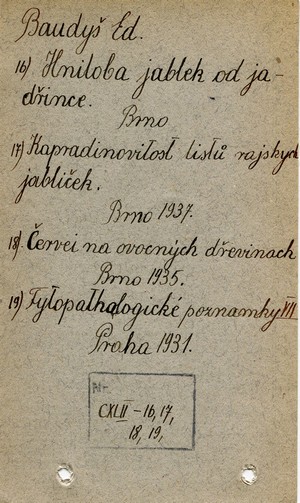 Baudyš Ed.
16) Hniloba jablek od ja-
dřince.
Brno
17) Kapradinovitost listů rajských
jablíček.
Brno 1937.
18) Červci na ovocných dřevinach
Brno 1935.
19) Fytopathologické poznamky VII
Praha 1931.
Nr.
CXLII - 16, 17,
18, 19,